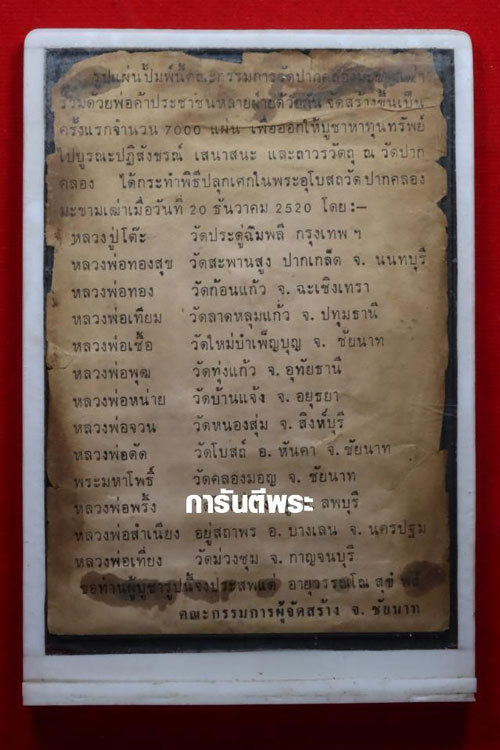 รูปแผ่นปั๊มพ์นี้คณะกรรมการวัดปากคลองมะขามเฒ่า
ร่วมด้วยพ่อค้าประชาชนหลายฝ่ายด้วยกัน จัดสร้างขึ้นเป็น
ครั้งแรกจำนวน 7000 แผ่น เพื่อออกให้บูชาหาทุนทรัพย์
ไปบูรณะปฏิสังขรณ์ เสนาสนะ และถาวรวัตถุ ณ วัดปาก
คลอง ได้กระทำพิธีปลุกเศกในพระอุโบสถวัดปากคลอง
มะขามเฒ่าเมื่อวันที่ 20 ธันวาคม 2520 โดย:–
หลวงปู่โต๊ะ วัดประดู่ฉิมพลี กรุงเทพฯ
หลวงพ่อทองสุข วัดสะพานสูง ปากเกล็ด จ. นนทบุรี
หลวงพ่อทอง วัดก้อนแก้ว จ. ฉะเชิงเทรา
หลวงพ่อเทียม วัดลาดหลุมแก้ว จ. ปทุมธานี
หลวงพ่อเชื้อ วัดใหม่บำเพ็ญบุญ จ. ชัยนาท
หลวงพ่อพุฒ วัดทุ่งแก้ว จ. อุทัยธานี
หลวงพ่อหน่าย วัดบ้านแจ้ง จ. อยุธยา
หลวงพ่อจวน วัดหนองสุ่ม จ. สิงห์บุรี
หลวงพ่อดัด วัดโบสถ์ อ. หันคา จ. ชัยนาท
พระมหาโพธิ์ วัดคลองมอญ จ. ชัยนาท
หลวงพ่อพริ้ง ลพบุรี
การันตีพระ
หลวงพ่อสำเนียง อยู่สถาพร อ. บางเลน จ. นครปฐม
หลวงพ่อเที่ยง วัดม่วงชุม จ. กาญจนบุรี
ขอท่านผู้บูชารูปนี้จงประสพแต่ อายุวรรณโณ สุขํ พลํ
คณะกรรมการผู้จัดสร้าง จ. ชัยนาท